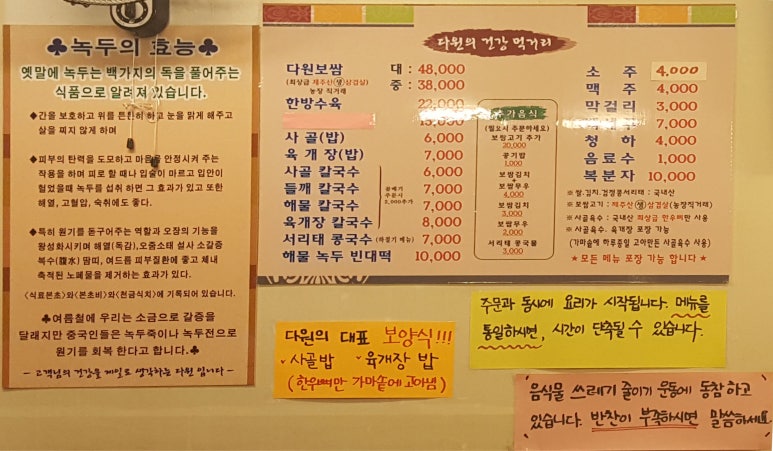 ♣녹두의 효능♣
옛말에 녹두는 백가지의 독을 풀어주는
식품으로 알려져 있습니다.
◆간을 보호하고 위를 튼튼히 하고 눈을 맑게 해주고
살을 찌지 않게 하며
◆피부의 탄력을 도모하고 마음을 안정시켜 주는
작용을 하며 피로 할때나 입술이 마르고 입안이
헐었을때 녹두를 섭취 하면 그 효과가 있고 또한
해열, 고혈압, 숙취에도 좋다.
◆특히 원기를 돋구어주는 역할과 오장의 기능을
왕성화시키며 해열(독감),오줌소태 설사 소갈증
복수(腹水) 땀띠, 여드름 피부질환에 좋고 체내
축적된 노폐물을 제거하는 효과가 있다.
<식료본초>와<본초비>와<천금식치>에 기록되어 있습니다.
♣여름철에 우리는 소금으로 갈증을
달래지만 중국인들은 녹두죽이나 녹두전으로
원기를 회복 한다고 합니다.♣
- 고객님의 건강을 제일로 생각하는 다원 입니다 -
다원의 건강 먹거리
다원보쌈 대 : 48,000
(최상급 제주산(생)삼겹살) 중 : 38,000
농장 직거래
한방수육 22,000
15,000
사 골(밥) 6,000
육 개 장(밥) 7,000
사골 칼국수 6,000
들깨 칼국수 7,000
해물 칼국수 7,000
육개장 칼국수 8,000
곱빼기
주문시
2,000추가
서리태 콩국수 (하절기 메뉴) 7,000
해물 녹두 빈대떡 10,000
추가음식
(필요시 주문하세요)
보쌈고기 추가
20,000
공기밥
1,000
보쌈김치
+
보쌈무우
4,000
보쌈김치
3,000
보쌈무우
2,000
서리태 콩국물
3,000
소 주 4,000
맥 주 4,000
막걸리 3,000
7,000
청 하 4,000
음료수 1,000
복분자 10,000
※쌀.김치.검정콩서리태 : 국내산
※보쌈고기 : 제주산(생)삼겹살(농장직거래)
※사골육수 : 국내산 최상급 한우뼈만 사용
※사골육수. 육개장 포장 가능
(가마솥에 하루종일 고아만든 사골육수 사용)
★모든 메뉴 포장 가능 합니다★
다원의 대표 보양식!!!
사골밥 육개장 밥
(한우뼈만 가마솥에 고아냄)
주문과 동시에 요리가 시작됩니다. 메뉴를
통일하시면, 시간이 단축될 수 있습니다.
음식물 쓰레기 줄이기 운동에 동참하고
있습니다. 반찬이 부족하시면 말씀하세요